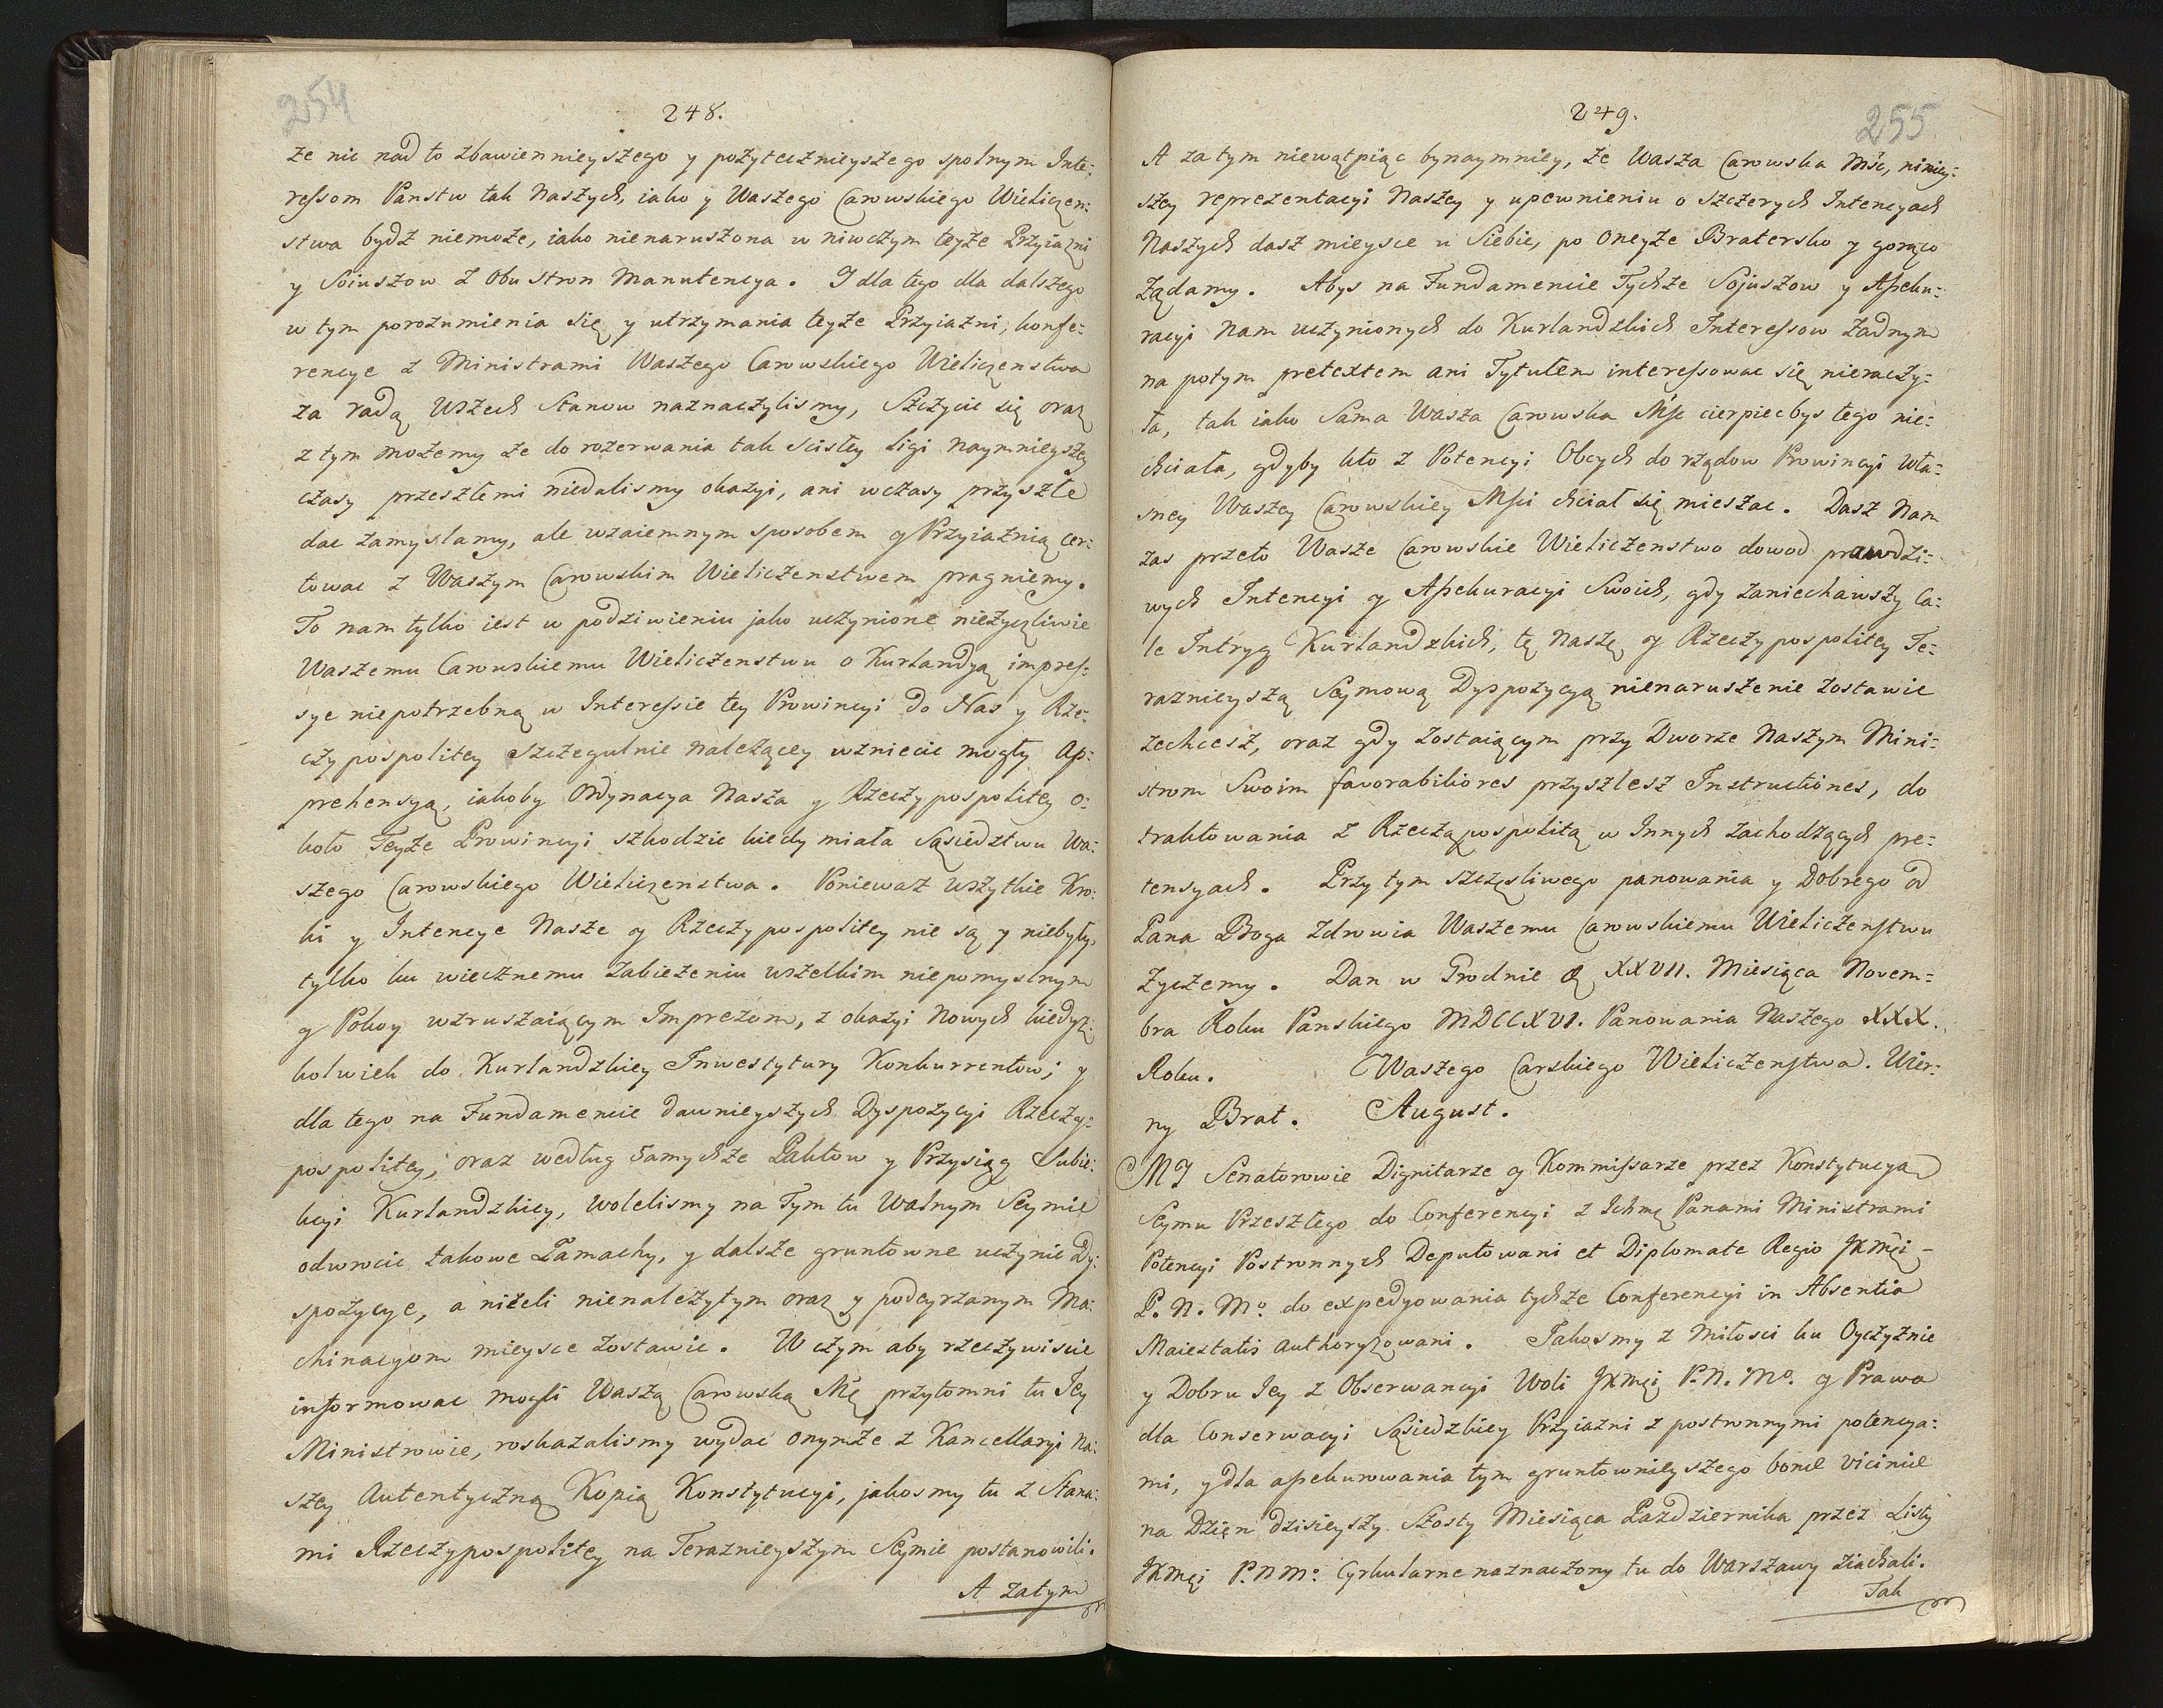 254
248.
że nic nad to zbawiennieyszego y pożytecznieyszego spolnym Inte:
ressom Panstw tak Naszych, iako y Waszego Carowskiego Wieliczen:
stwa bydź niemoże, iako nienaruszona w niwczym teyże Przyiazni
y Soiuszow z Obu stron Manutencya. I dla tego dla dalszego
w tym porozumienia się y utrzymania teyże Przyiazni, konfe:
rencye z Ministrami Waszego Carowskiego Wieliczenstwa
za radą Wszech Stanow naznaczylismy, Szczycic się oraz
z tym możemy że do rozerwania tak scisłey ligi naymnieyszey
czasy przeszłemi niedalismy okazyi, ani w czasy przyszłe
dac zamyslamy, ale wzaiemnym sposobem y Przyiaznią cer:
towac z Waszym Carowskim Wieliczenstwem pragniemy.
To nam tylko iest w podziwieniu jako uczynione nieżyczliwie
Waszemu Carowskiemu Wieliczenstwu o Kurlandyą impres:
sye niepotrzebną w Interessie tey Prowincyi do Nas y Rze:
czypospolitey szczegulnie należącey wzniecic mogły ap:
prehensyą, iakoby Ordynacya Nasza y Rzeczypospolitey o:
koło Teyże Prowincyi szkodzic kiedy miała Sąsiedztwu Wa:
szego Carowskiego Wieliczenstwa. Poniewaz wszytkie Kro:
ki y Intencye Nasze y Rzeczypospolitey nie są y niebyły,
tylko ku wiecznemu Zabieżeniu wszelkim niepomyslnym
y Pokoy wzruszaiącym Imprezom, z okazyi Nowych kiedyż:
kolwiek do Kurlandzkiey Inwestytury Konkurrentow; y
dla tego na Fundamencie dawnieyszych Dyspozycyi Rzeczy:
pospolitey, oraz według samychże Paktow y Przysiąg Subie:
kcyi Kurlandzkiey, wolelismy na Tym tu Walnym Seymie
odwrocic takowe Zamachy, y dalsze gruntowne uczynic Dy:
spozycye, a niżeli nienależytym oraz y podeyrzanym Ma:
chinacyom mieysce zostawic. W czym aby rzeczywiscie
informowac mogli Waszą Carowską Mć przytomni tu Jey
Ministrowie, roskazalismy wydac onymże z Kancellaryi Na:
szey Autentyczną Kopią Konstytucyi, jakosmy tu z Stana:
mi Rzeczypospolitey na Terazneyszym Seymie postanowili.
A zatym
249.
255
A zatym niewątpiąc bynaymniey, że Wasza Carowska Mść, niniey:
szey reprezentacyi Naszey y upewnieniu o szczerych Intencyach
Naszych dasz mieysce u Siebie, po Oneyże Bratersko y gorąco
Żądamy. Abys na Fundamencie Tychże Sojuszow y Assecku:
racyi Nam uczynionych do Kurlandzkich Interessow żadnym
na potym pretextem ani Tytułem interessowac się nieraczy:
ła, tak iako Sama Wasza Carowska Mśc cierpiecbys tego nie:
chciała, gdyby kto z Potencyi Obcych do rządow Prowincyi Wła:
sney Waszey Carowskiey Mści chciał się mieszac. Dasz Nam
zas przeto Wasze Carowskie Wieliczenstwo dowod prawdzi:
wych Intencyi y Assekuracyi Swoich, gdy zaniechawszy Ca:
le Intryg Kurlandzkich, tę Naszę y Rzeczypospolitey Te:
raznieyszą Seymową Dyspozycyą nienaruszenie zostawic
zechcesz, oraz gdy zostaiącym przy Dworze Naszym Mini:
strom Swoim favorabiliores przyszlesz Instructiones, do
traktowania z Rzecząpospolitą w Innych zachodzących pre:
tensyach. Przy tym szczęsliwego panowania y Dobrego od
Pana Boga Zdrowia Waszemu Carowskiemu Wieliczenstwu
Życzemy. Dan w Grodnie XXVII. Miesiąca Novem:
bra Roku Panskiego MDCCXVI. Panowania Naszego XXX.
Roku. Waszego Carskiego Wieliczenstwa. Wier:
ny Brat. August.
MY Senatorowie Dignitarze y Kommissarze przez Konstytucyą
Seymu Przeszłego do Conferencyi z Ichmę Panami Ministrami
Potencyi Postronnych Deputowani et Diplomate Regio JKMći
P. N. Mo. do expedyowania tychże Conferencyi in Absentia
Maiestatis authoryzowani. Jakosmy z Miłosci ku Oyczyznie
y Dobru Jey z Obserwancyi Woli JKMći P. N. Mo. y Prawa
dla Conserwacyi Sąsiedzkiey Przyiazni z postronnymi potencya:
mi, y dla assekurowania tym gruntownieyszego bonæ viciniæ
na Dzięn dzisieyszy. Szosty Miesiąca Pazdziernika przez Listy
JKMći P. N Mo: Cyrkularne naznaczony tu do Warszawy ziachali.
Tak